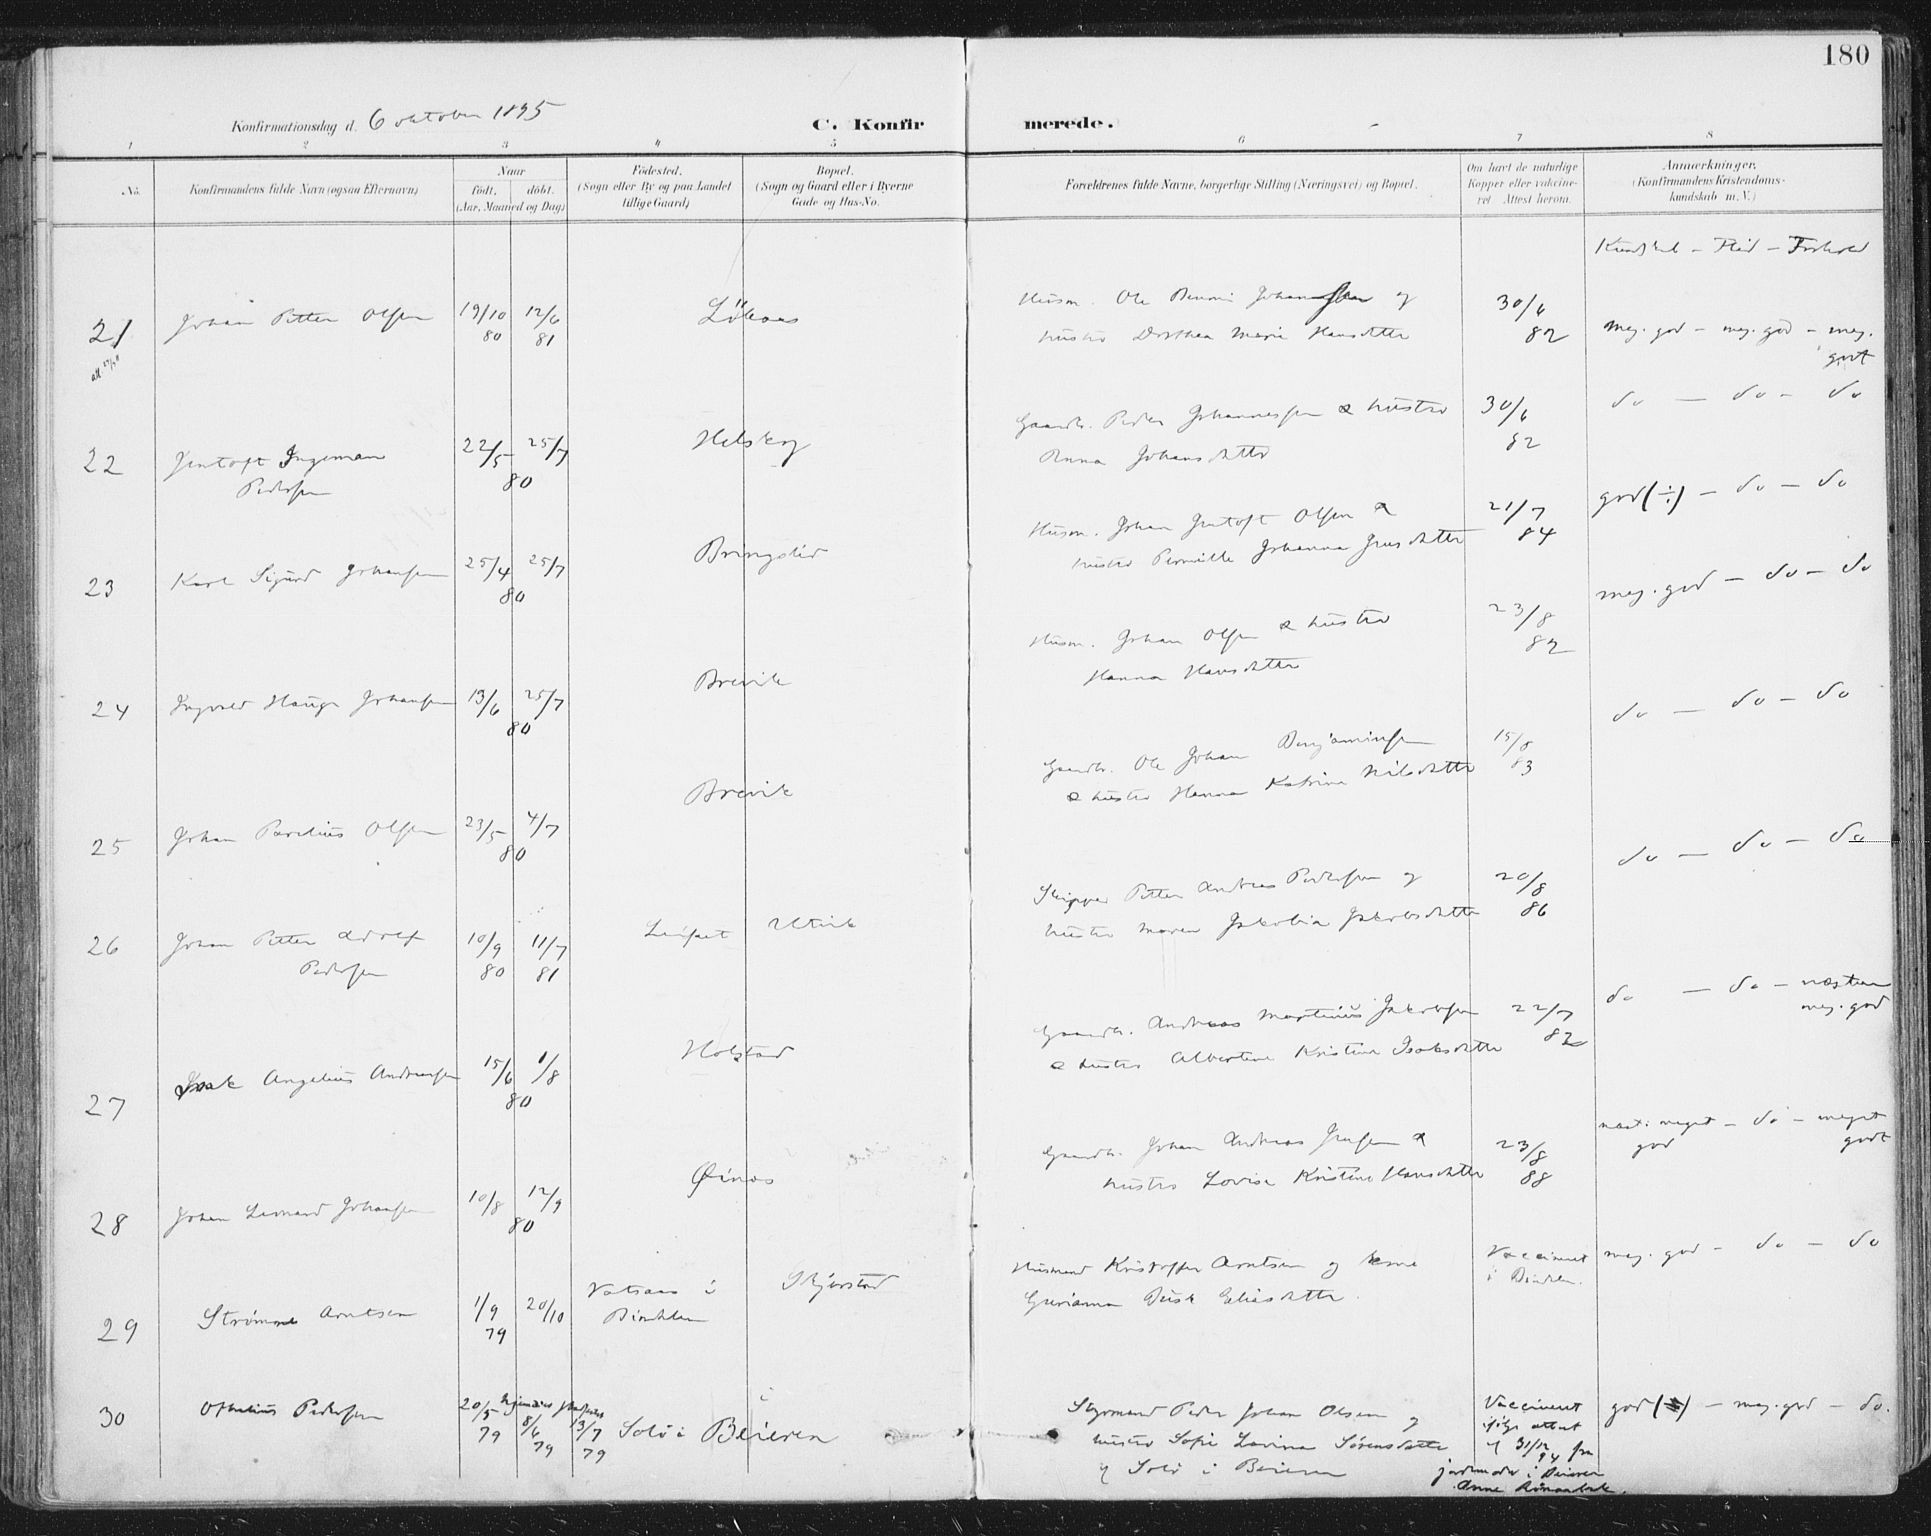 180
Konfirmationsdag d. 6 oktober 1895
C. Konfirmerede.
1 2 3 4 5 6 7 8
No.
Konfirmandens fulde Navn (ogsaa Efternavn)
Naar
født, døbt.
(Aar, Maaned og Dag)
Fødested.
(Sogn eller By og paa Landet
tillige Gaard)
Bopæl.
(Sogn og Gaard eller i Byerne
Gade og Hus-No.
Forældrenes fulde Navne, borgerlige Stilling (Næringsvei) og Bopæl.
Om havt de naturlige
Kopper eller vakcine-
ret Attest herom.
Anmærkninger.
(Konfirmandens Kristendoms-
kundskab m. V.)
Kundskab - Flid - Forhold
21 Johan Petter Olsen 19/10 80 12/6 81 Løkaas
Husm. Ole Benoni Johannessen og
hustro Dorthea Marie Hansdatter
30/6 82
meg. god - meg. god - meg.
godt
22 Jentoft Ingeman
Pedersen
22/5 25/7 80 Helskog
Gaardb. Peder Johannessen & hustro
Anna Johansdatter
30/6 82
do - do - do
23 Karl Sigurd Johansen 25/4 25/7 80 Bringslid
Husm. Johan Jentoft Olsen &
hustro Pernille Johanna Jensdatter
21/7 84
god (÷) - do - do
24 Ingvald Hauge Johansen 13/6 25/7 80 Brevik
Husm. Johan Olsen & hustro
Hanna Hansdatter
23/8 82
meg. god - do - do
25 Johan Parelius Olsen 23/5 4/7 80 Brevik
Gaardb. Ole Johan Benjaminsen
& hustro Hanna Katrina Nilsdatter
15/8 83
do - do - do
26 Johan Petter Adolf
Pedersen
10/9 80 11/7 81 Leifset Utvik
Skipper Petter Andreas Pedersen og
hustro Maren Jakobia Jakobsdatter
20/8 86
do - do - do
27 Isak Angelius Andreassen 15/6 1/8 80 Holstad
Gaardb. Andreas Martinus Jakobsen
& hustro Albertine Kristine Isaksdatter
22/7 82
do - do - næsten
meg. god
28 Johan Leonard Johansen 10/8 12/9 80 Øines
Gaardb. Johan Andreas Jensen &
hustro Lovise Kristine Hansdatter
23/8 88
næst. meget - do - meget
god godt
29 Strømme Arntsen 1/9 79 20/10 Vatsaas i
Bindalen
Skjerstad
Husmand Kristoffer Arntsen og kone
Elisdatter
Vaccineret
i Bindalen.
meg. god - do - do
30 Othelius Pedersen 20/5 79 8/6 79 13/7 79 Solø i Beieren
Styrmand Peder Johan Olsen og
hustro Sofie Lovina Sørensdatter
af Solø i Beieren
Vaccineret
ifølge attest
af 31/12 94 fra
jordmoder i Beieren
Anne
god (÷) - meg. god - do.